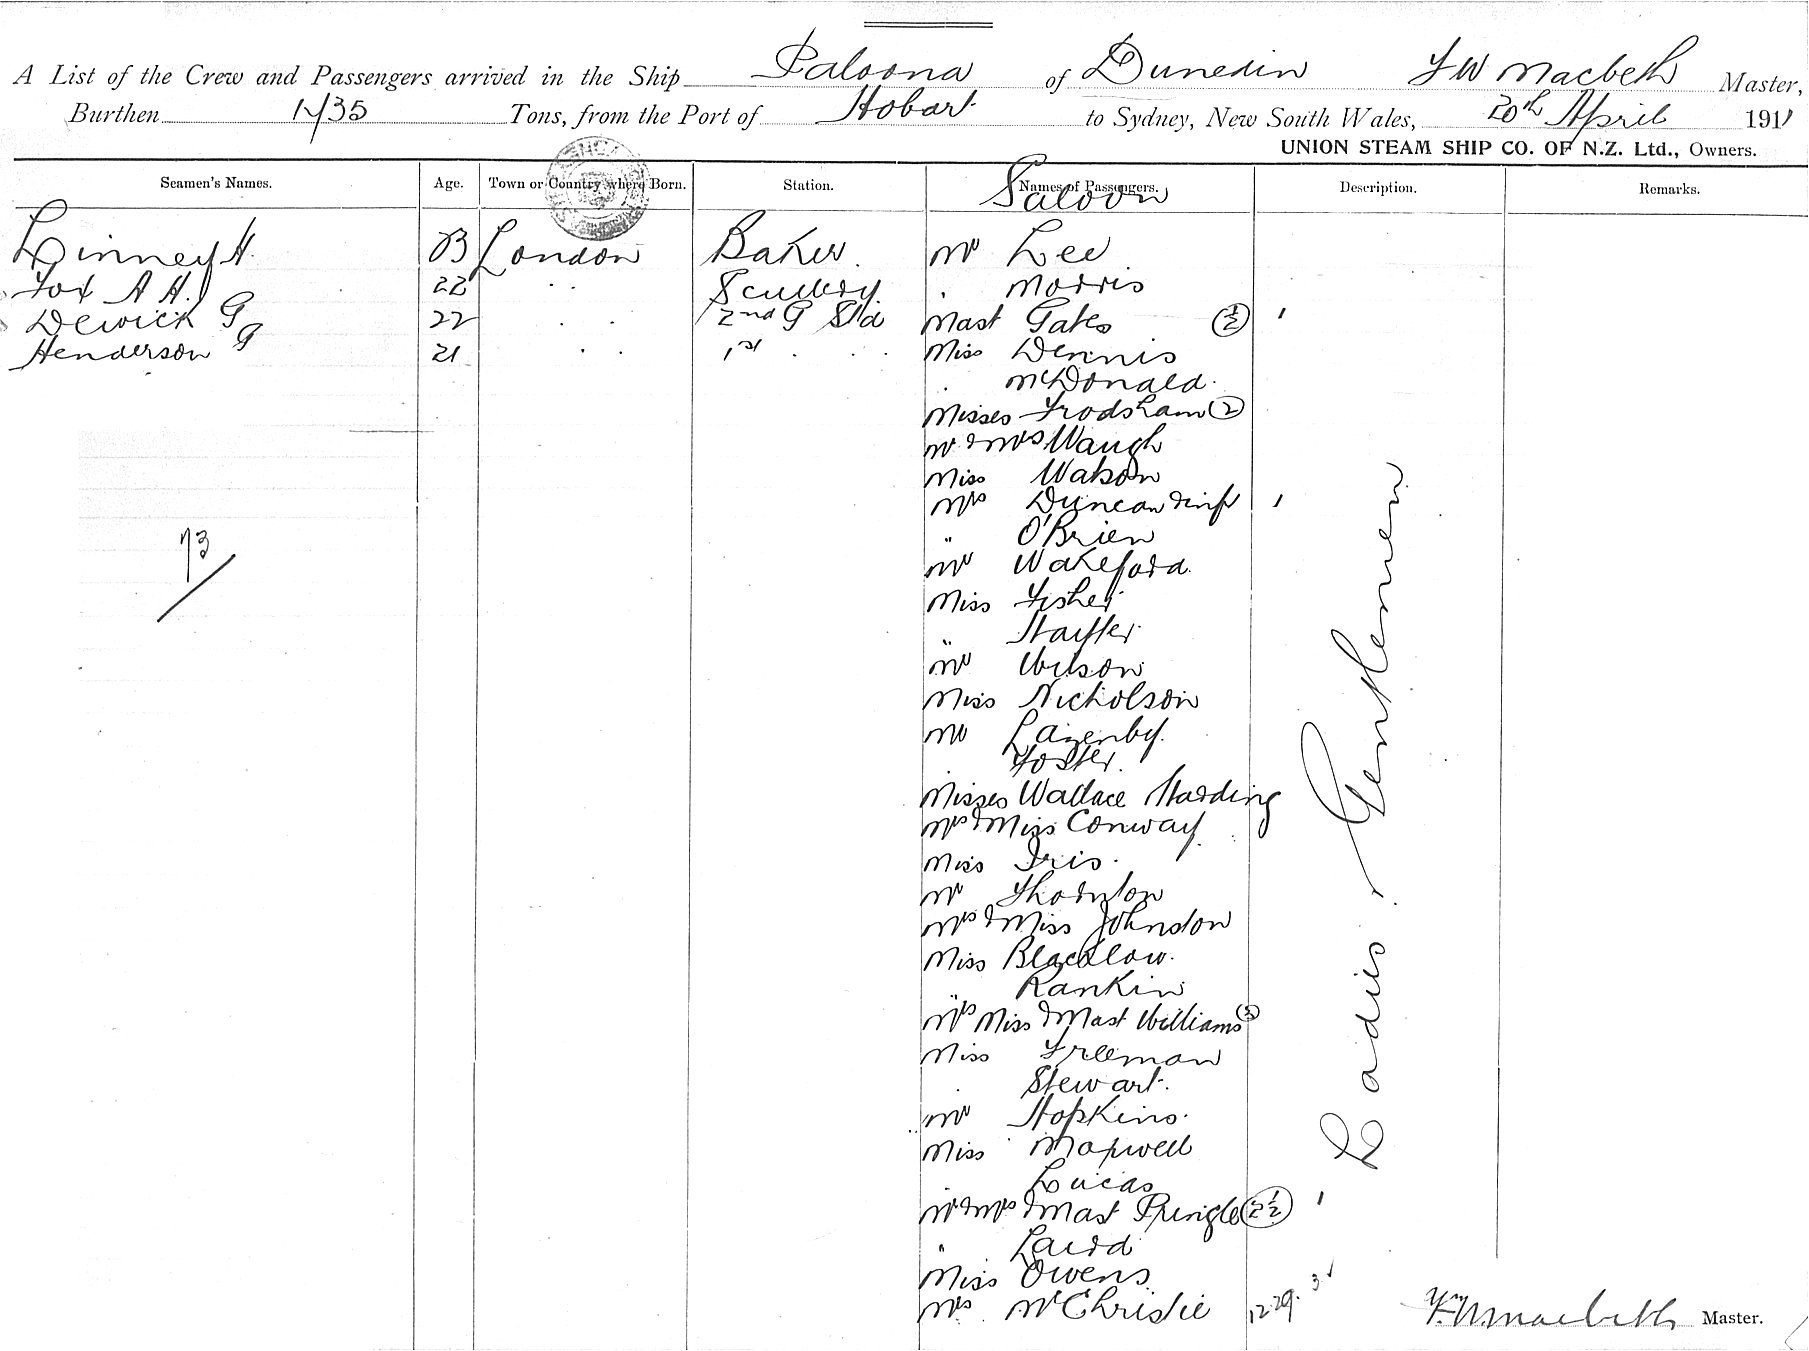 A List of the Crew and Passengers arrived in the Ship Paloona of Dunedin F W Macbeth Master,
Burthen Tons, from the Port of Hobart to Sydney, New South Wales, 20th April 1911
UNION STEAM SHIP CO. OF N.Z. Ltd., Owners.
Seamen's Names. Age. Town or Country where Born. Station. Names of Passengers. Description. Remarks.
Saloon
Linney H. London Baker Mr Lee
Fox A H. 22 " Scullery . Morris
Dewick G 22 " 2nd G Std Mast Gates (½) '
Henderson G 21 " 1st " " Miss Dennis
. McDonald
Misses Frodsham (2)
Mr & Mrs Waugh
Miss Watson
Mrs Duncan & inft '
" O'Brien
Mr Wakeford
73
Miss Fisher
"
Mr Wilson
Miss Nicholson
Mr Lazenby
. Foster
Misses Wallace Harding
Mrs & Miss Conway
Miss Iris
Mr Thornton
Mrs & Miss Johnston
Miss Blacklow
" Rankin
Mrs Miss & Mast Williams (3)
Miss Freeman
. Stewart
Mr Hopkins
Miss Maxwell
" Lucas
Mr & Mrs & Mast Pringle (2½) '
" Laird
Miss Owens
Mrs McChristie 12 29. 3 '
Ladies , Gentlemen
F W Macbeth Master.